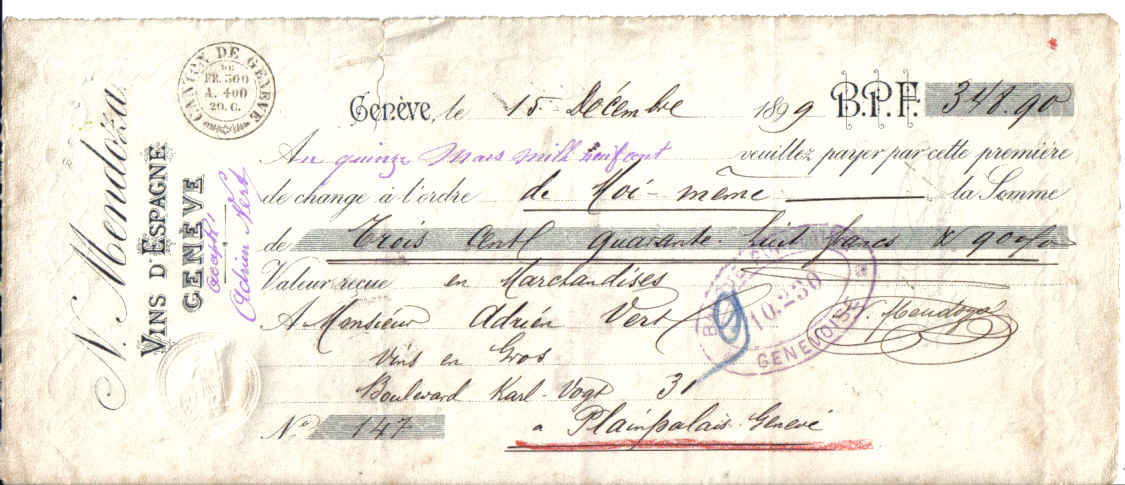 N. Mendoza
VINS D'ESPAGNE
GENÈVE
CANTON DE GENÈVE
DE
FR. 300
A. 400
20. C.
accepté
Adrien Vert
Genève, le 15 Décembre 1899 B.P.F. 348.90
Au quinze Mars mill neufcent veuillez payer par cette première
de change à l'ordre de Moi-même la Somme
de Trois Cent quarante-huit francs & 90
Valeur reçue en Marchandises
A Monsieur Adrien Vert
Mendoza
Vins en Gros
Boulevard Karl-Vogt 31
No 147 à Plainpalais-Genève
10.230
GENEVOISE
9